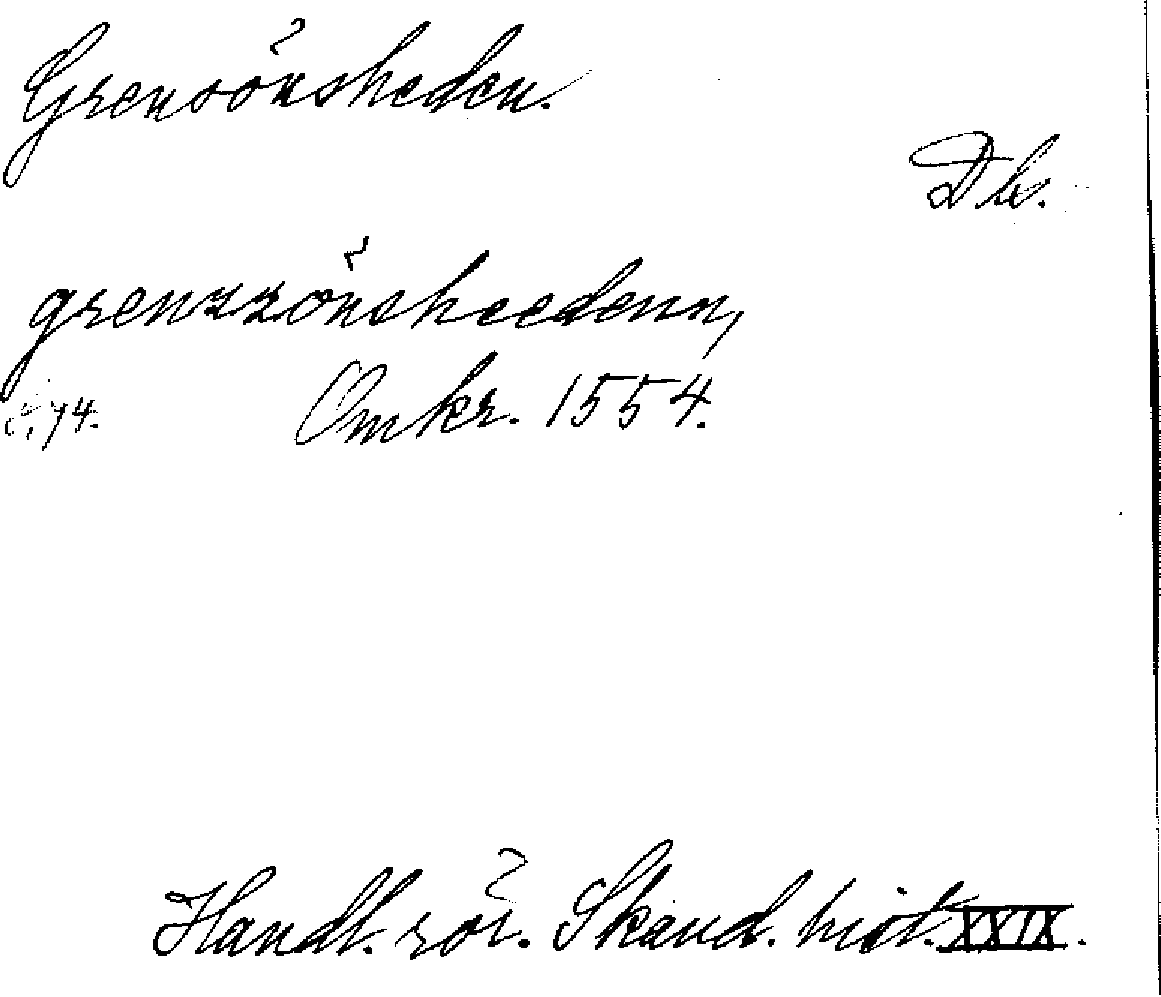 Grensönsheden.
Db.
grenzzönsheedenn,
s. 74. Omkr. 1554.
Handl. rör. Skand. hist. XXIX.